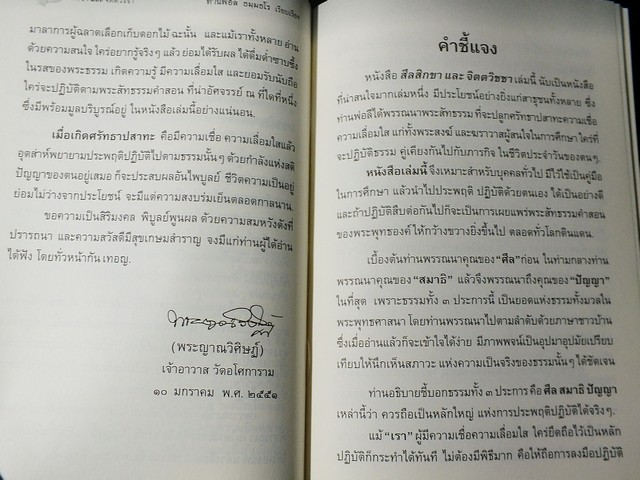 ท่านพ่อลี ธมฺมธโร เรียบเรียง
มาลาการผู้ฉลาดเลือกเก็บดอกไม้ ฉะนั้น และแม้เราทั้งหลาย อ่าน
ด้วยความสนใจ ใคร่อยากรู้จริงๆ แล้ว ย่อมได้รับผล ได้ดื่มด่ำซาบซึ้ง
ในรสของพระธรรม เกิดความรู้ มีความเลื่อมใส และยอมรับนับถือ
ใคร่จะปฏิบัติตามพระสัทธรรมคำสอน ที่น่าอัศจรรย์ ณ ที่ใดที่หนึ่ง
ซึ่งมีพร้อมมูลบริบูรณ์อยู่ ในหนังสือเล่มนี้อย่างแน่นอน.
เมื่อเกิดศรัทธาปสาทะ คือมีความเชื่อ ความเลื่อมใสแล้ว
อุตส่าห์พยายามประพฤติปฏิบัติไปตามธรรมนั้นๆ ด้วยกำลังแห่งสติ
ปัญญาของตนอยู่เสมอ ก็จะประสบผลอันไพบูลย์ ชีวิตความเป็นอยู่
ย่อมไม่ว่างจากประโยชน์ จะมีแต่ความสงบร่มเย็นตลอดกาลนาน.
ขอความเป็นสิริมงคล พิบูลย์พูนผล ด้วยความสมหวังดังที่
ปรารถนา และความสวัสดีมีสุขเกษมสำราญ จงมีแก่ท่านผู้ได้อ่าน
ได้ฟัง โดยทั่วหน้ากัน เทอญ.
(พระญาณวิศิษฏ์)
เจ้าอาวาส วัดอโศการาม
๑๐ มกราคม พ.ศ. ๒๕๕๑
คำชี้แจง
หนังสือ สีลสิกขา และ จิตตวิชชา เล่มนี้ นับเป็นหนังสือ
ที่น่าสนใจมากเล่มหนึ่ง มีประโยชน์อย่างยิ่งแก่สาธุชนทั้งหลาย ซึ่ง
ท่านพ่อลีได้พรรณนาพระสัทธรรม ที่จะปลูกศรัทธาปสาทะความเชื่อ
ความเลื่อมใส แก่ทั้งพระสงฆ์ และฆราวาสผู้สนใจในการศึกษา ใคร่ที่
จะปฏิบัติธรรม คู่เคียงกันไปกับภารกิจ ในชีวิตประจำวันของตนๆ.
หนังสือเล่มนี้ จึงเหมาะสำหรับบุคคลทั่วไป มีไว้ใช้เป็นคู่มือ
ในการศึกษา แล้วนำไปประพฤติ ปฏิบัติด้วยตนเอง ได้เป็นอย่างดี
และถ้าปฏิบัติสืบต่อกันไปก็จะเป็นการเผยแพร่พระสัทธรรมคำสอน
ของพระพุทธองค์ ให้กว้างขวางยิ่งขึ้นไป ตลอดทั่วโลกดินแดน.
เบื้องต้นท่านพรรณนาคุณของ “ศีล” ก่อน ในท่ามกลางท่าน
พรรณนาคุณของ “สมาธิ” แล้วจึงพรรณนาถึงคุณของ “ปัญญา”
ในที่สุด เพราะธรรมทั้ง ๓ ประการนี้ เป็นยอดแห่งธรรมทั้งมวลใน
พระพุทธศาสนา โดยท่านพรรณนาไปตามลำดับด้วยภาษาชาวบ้าน
ซึ่งเมื่ออ่านแล้วก็จะเข้าใจได้ง่าย มีภาพพจน์เป็นอุปมาอุปมัยเปรียบ
เทียบให้นึกเห็นสภาวะ แห่งความเป็นจริงของธรรมนั้นๆ ได้ชัดเจน
ท่านอธิบายชี้บอกธรรมทั้ง ๓ ประการ คือ ศีล สมาธิ ปัญญา
เหล่านี้ว่า ควรถือเป็นหลักใหญ่ แห่งการประพฤติปฏิบัติได้จริงๆ.
แม้ “เรา” ผู้มีความเชื่อความเลื่อมใส ใคร่ยึดถือไว้เป็นหลัก
ปฏิบัติก็กระทำได้ทันที ไม่ต้องมีพิธีมาก คือให้ถือการลงมือปฏิบัติ